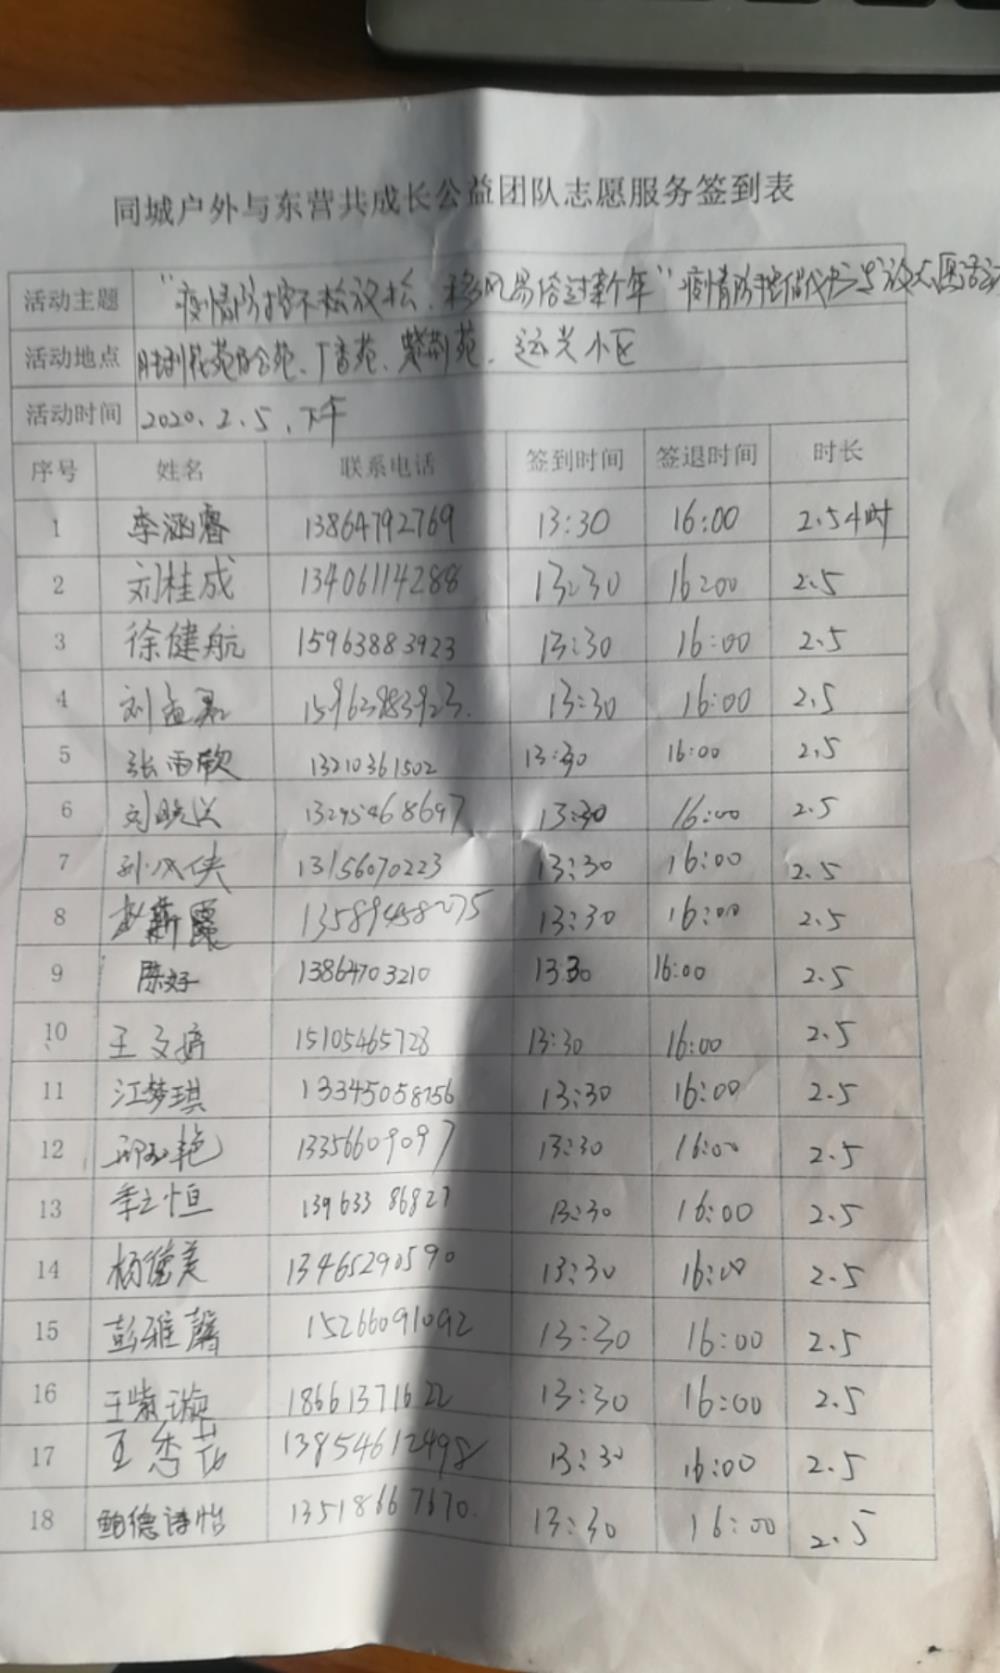 同城户外与东营共成长公益团队志愿服务签到表
活动主题 "疫情防控不松放松、移风易俗过新年"疫情防控倡议书发放志愿活动
活动地点 胜利花苑百合苑、丁香苑、紫荆苑、运兴小区
活动时间 2020.2.5.下午
序号 姓名 联系电话 签到时间 签退时间 时长
1 李涵睿 13864792769 13:30 16:00 2.5小时
2 刘桂成 13406114288 13:30 16:00 2.5
3 徐健航 15963883923 13:30 16:00 2.5
4 刘孟君 15963883923. 13:30 16:00 2.5
5 张雨歆 13210361502 13:30 16:00 2.5
6 刘晓 13295468697 13:30 16:00 2.5
7 孙 侠 13156070223 13:30 16:00 2.5
8 赵 13589458275 13:30 16:00 2.5
9 陈好 13864703210 13:30 16:00 2.5
10 王文婷 15105465728 13:30 16:00 2.5
11 江梦琪 13345058756 13:30 16:00 2.5
12 艳 13356609097 13:30 16:00 2.5
13 季之恒 13963386827 13:30 16:00 2.5
14 杨俊美 13465290590 13:30 16:00 2.5
15 彭雅馨 15266091092 13:30 16:00 2.5
16 王紫璇 18661371622 13:30 16:00 2.5
17 王秀花 13854612498 13:30 16:00 2.5
18 鲍德诗怡 13518667670. 13:30 16:00 2.5